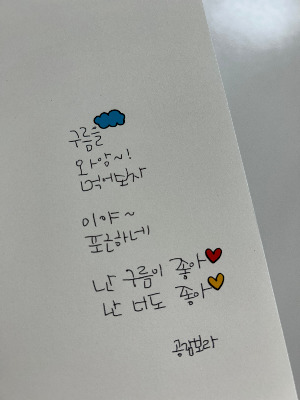 구름을
와앙~!
먹어보자
이야~
포근하네
난 구름이 좋아
난 너도 좋아
공감보라